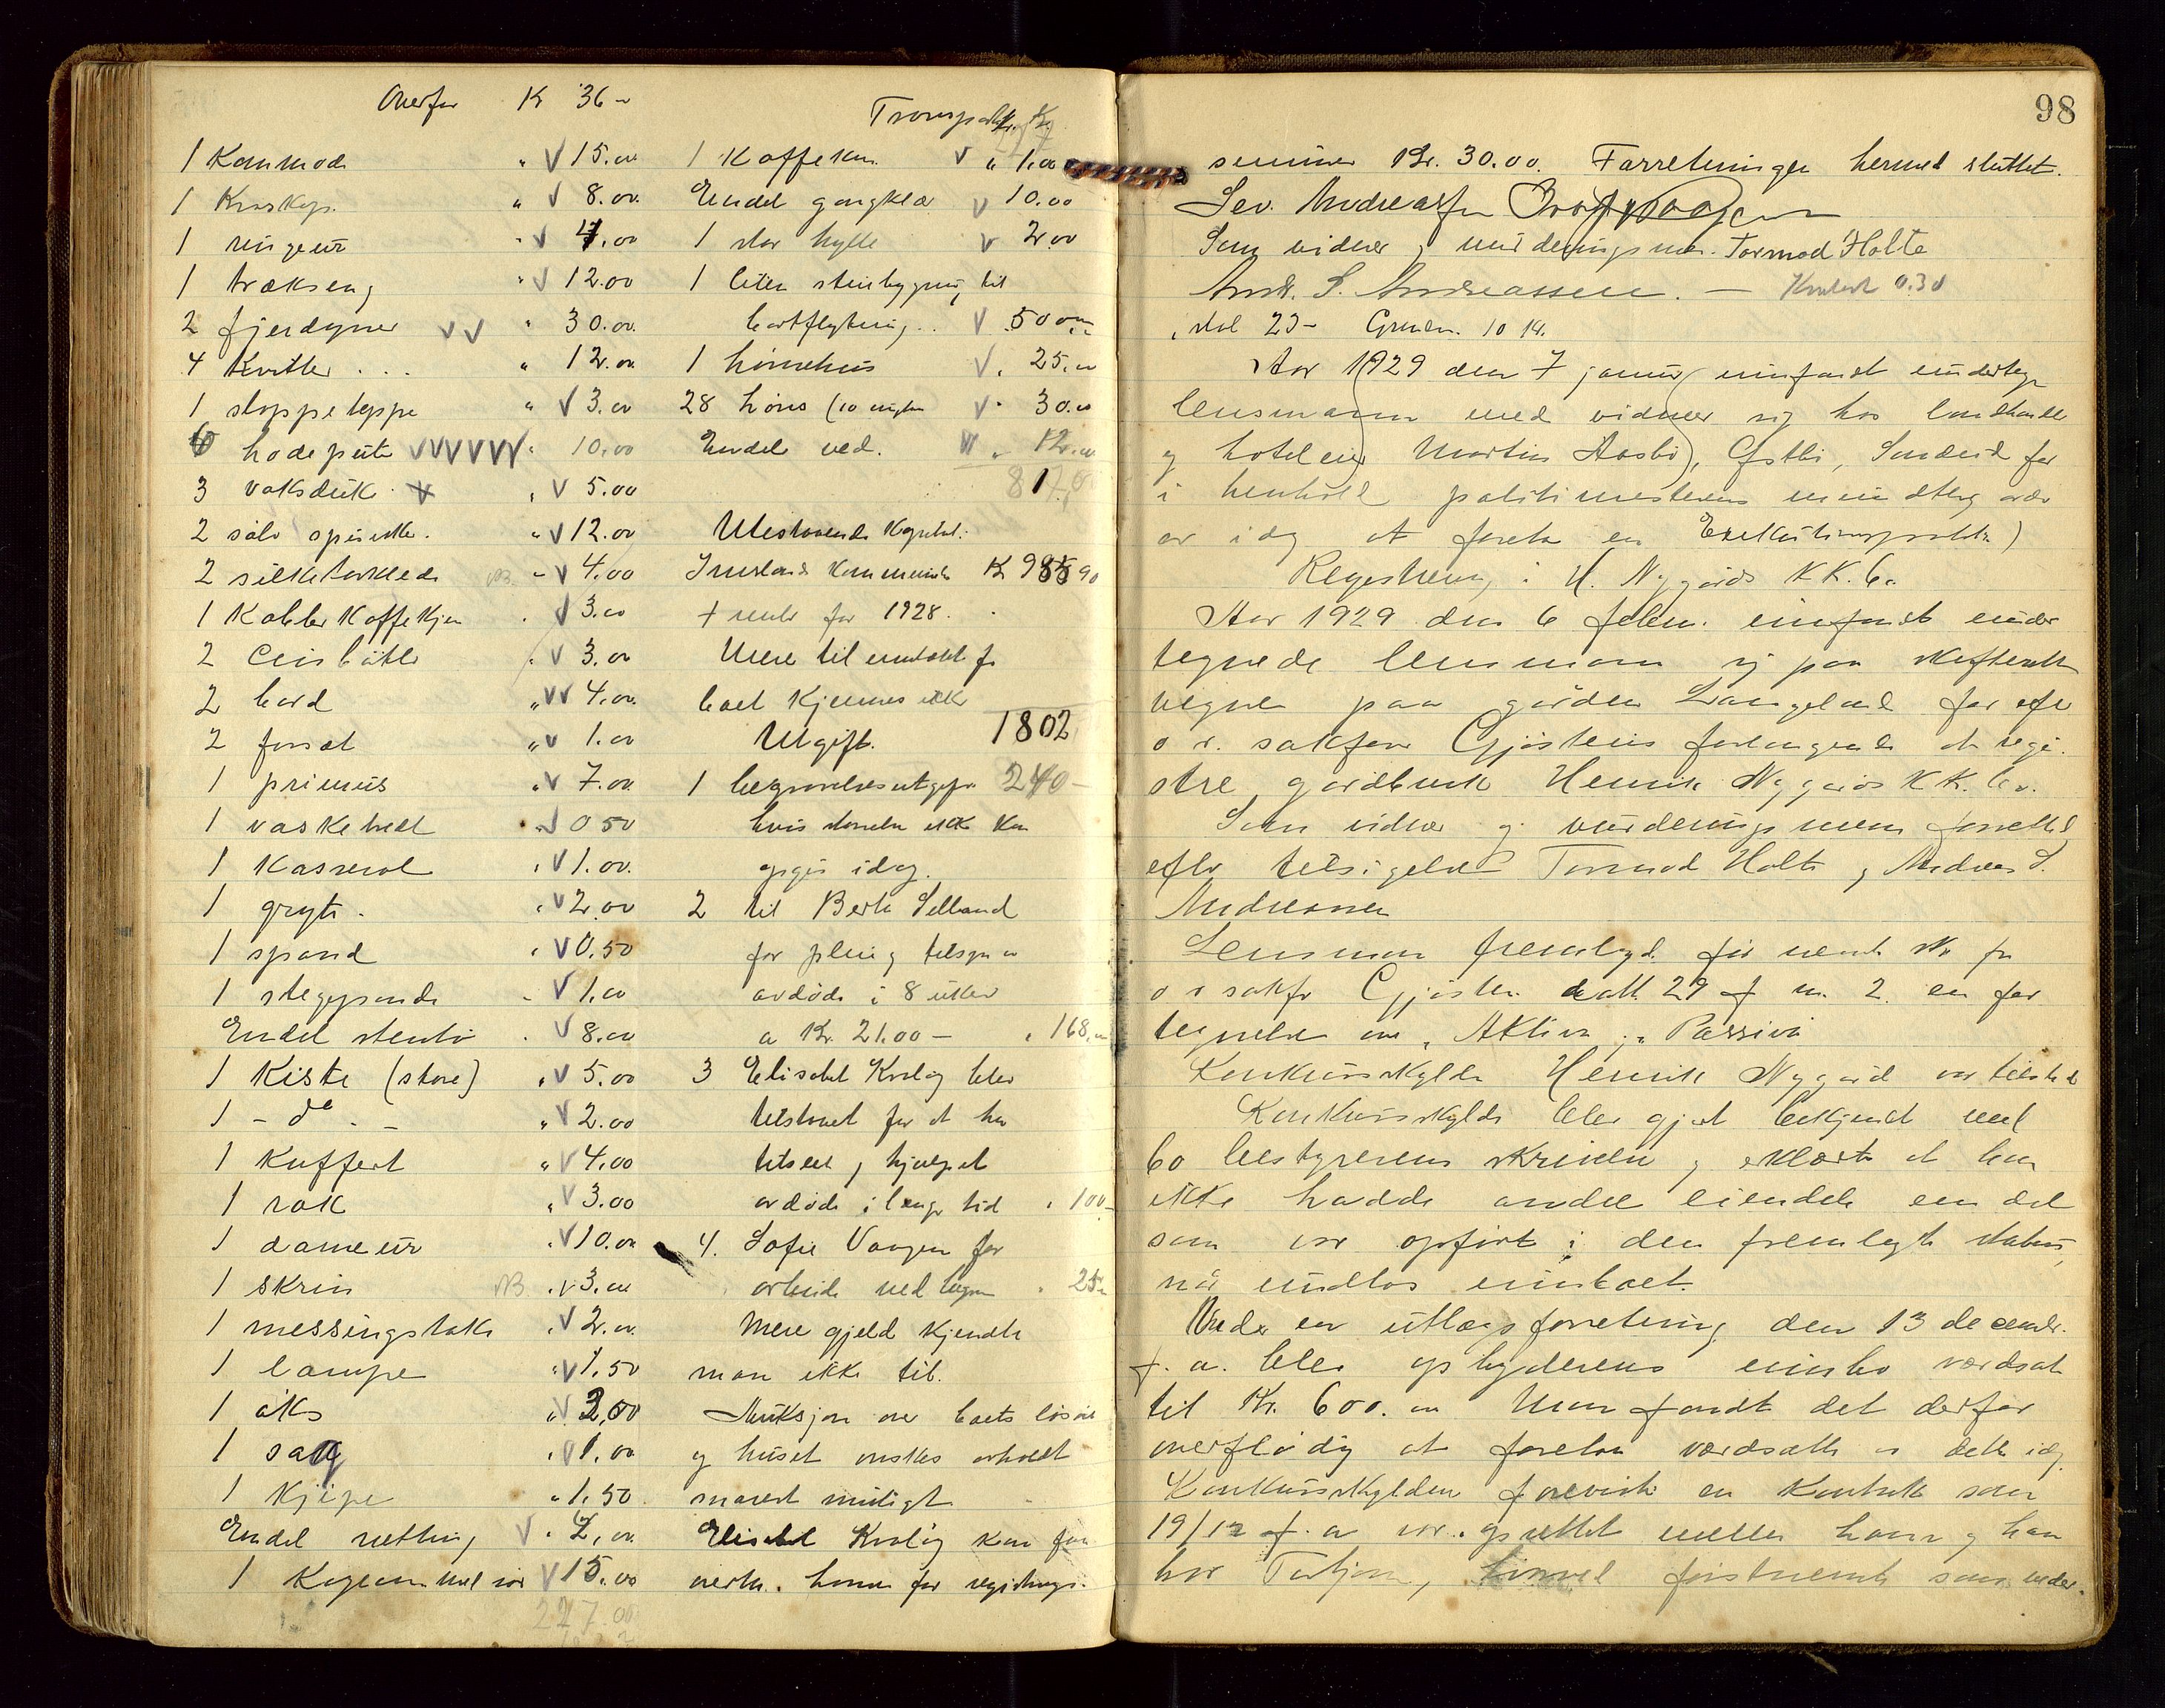 Overfør Kr 36 -
1 Kommode " V 15.00
1 Kroskap. " V 8.00
1 ringeur " V 4.00
1 trækseng " V 12.00
2 fjerdyner VV " 30.00
4 Kvitler . . . " 12.00
1 stoppeteppe " V 3.00
6 hodeputer VVVVVV " 10.00
3 voksduke V " V 5.00
2 sølv spiseskeer. " V 12.00
2 silketørklede NB. " V 4.00
1 Kobber Kaffekjen " V 3.00
2 Literbøtte " V 3.00
2 bord " VV 4.00
2 forsæt " V 1.00
1 primus " V 7.00
1 vaskebret " V 0 50
1 Kasserol " V 1.00
1 gryte. " V 2.00
1 spand " V 0.50
1 stegepande " V 1.00
Endel stentøi " V 8.00
1 Kiste (store) " V 5.00
1 - do - " V 2.00
1 Kuffert " V 4.00
1 rok " V 3.00
1 dameur " V 10.00
1 skrin NB " V 3.00
1 messingstake " V 2.00
1 lampe " V 1.50
1 øks " V 2,00
1 sag " V 1.00
1 Kjipe " 1.50
Endel netting V " 2,00
1 V 15.00
227.00
Transport Kr.
1 Kaffekan V " 1.00
Endel gangklær V 10.00
1 stor hylle V 2 00
1 liten steinbygning til
bortflytning.. V 50 00
1 hönsehus V " 25.00
28 höns (10 V " 30.00
Endel ved. V " 12.00
817,0
Utestaaende Kapital:
Imsland Kommune Kr 985 90
+ rente for 1928.
Mere til indtekt for
boet Kjennes ikke
1802
Utgift.
1 begravelsesutgifter 240-
hvis størrelse ikke kan
opgis idag.
2 til Berta Selland
for pleie og tilsyn av
avdøde i 8 uker
a Kr. 21.00 - " 168.00
3 Elisabet Kvaløy blev
tilstaaet for at ha
tilseet og hjulpet
avdøde i lengre tid " 100-
4. Sofie Vaagen for
arbeide ved begra " 25-
Mere gjeld kjendte
man ikke til.
Auksjon over boets løsøre
og huset ønskes avholdt
snarest muligt
Elisabet Kvaløy kan
overta. honor for registrerings-
98
summer Kr. 30.00. Forretningen hermed sluttet.
Sev. Andreassen
Som vidner og vurderingsmæn. Tormod Holte
Andr. S. Andreassen. —
23- 10 Kr.
Aar 1929 den 7 januar innfandt undertegn
lensmann med vidner sig hos landhandler
og hoteleier Martin Aasbø, Østbø, Sandeid for
i henhold politimesterens
av idag at foreta en
Registrering i H. Nygårds KK. bo
Aar 1929 den 6 febru. innfandt under
tegnede lensmann sig paa skifterettens
vegne paa gården Langeland for efter
o.r. sakfører Gjøsteins forlangende at regi-
strere gårdbruk Henrik Nygårds KK. bo.
Som vidner og vurderingsmenn forrettet
efter tilsigelse Tormod Holte og Andreas S.
Andreassen
Lensmann fremlagde før nevnte skr fra
o r sakfør Gjøstein datt. 29 f. m. 2. en for
tegnelse over "Aktiva", "Passiva"
Konkursskyldn Henrik Nygård var tilstede
Konkursskyldn blev gjort bekjendt med
bobestyrerens skrivelse og erklærte at han
ikke hadde andre eiendele enn det
som var opført i den fremlagte status,
når undtas innboet.
Under en utlægsforretning den 13 decembr.
f. a. blev opbyderens innbo værdsat
til Kr. 600.00 Man fandt det derfor
overflødig at foreta værdsatte av dette idag.
Konkursskylden foreviste en Kontrakt som
19/12 f. a var oprettet mellem ham og han
bror Torbjørn, hinvel førstnevnte som eder.